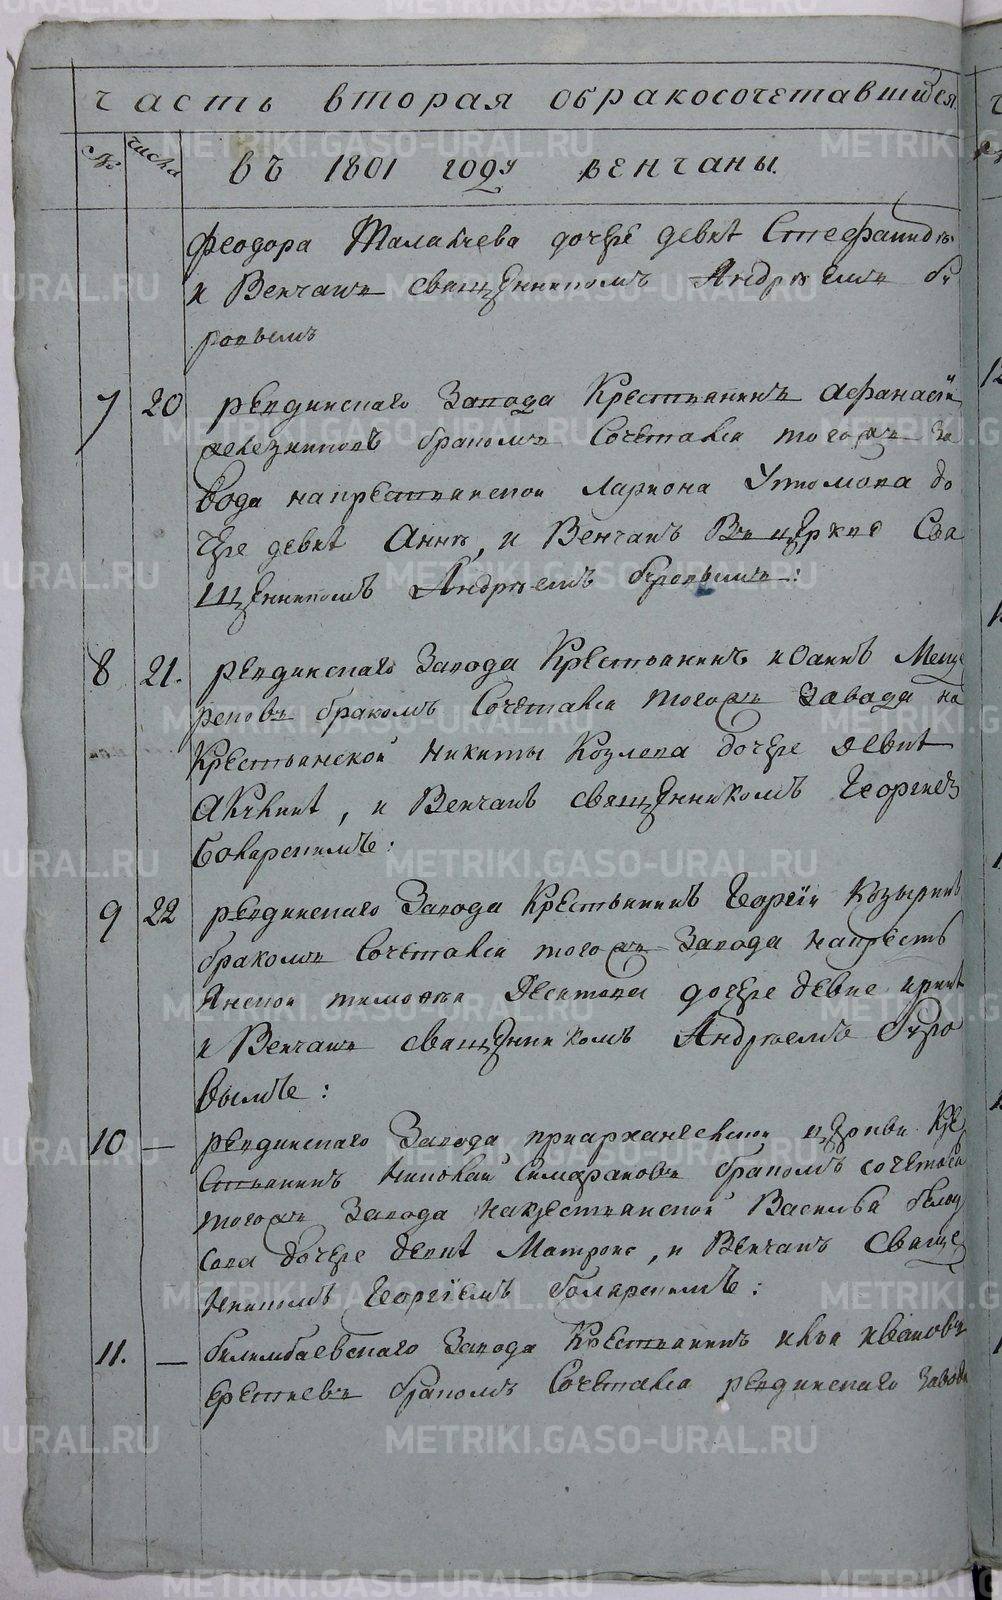 часть вторая обракосочетавшихся
№ числа въ 1801 году венчаны.
Феодора Талапчева дочере девке Стефаниде
и Венчанъ священникомъ Андреемъ бу
ровымъ
7 20 ревдинскаго Завода Крестьянинъ Афанасiй
железниковъ бракомъ Сочетался тогожъ за
вода накрестьянской Лариона Утюмова до
чере девке Анне, и Венчанъ Въ церкве Свя
щенникомъ Андреемъ буровымъ:
8 21. ревдинскаго Завода Крестьянинъ иоаннъ Меще
реповъ бракомъ Сочетался тогожъ Завада на
Крестьянской никиты Козлова дочере девке
Акилине, и Венчанъ священникомъ Георгиемъ
боярскимъ:
9 22 ревдинскаго Завода Крестьянинъ Георгiи Козыринъ
бракомъ Сочетался тогожъ Завода накресть
Янской тимофея Десятова дочере девке ирине
и Венчанъ священникомъ Андреемъ буро
вымъ:
10 — ревдинскаго Завода приархангелской церкви Кре
стьянинъ николай бракомъ сочетался
тогожъ Завода накрестьянской Василья белоу
сова дочере девке Матроне, и Венчанъ Свяще
никомъ Георгiемъ боярскимъ:
11. — билимбаевскаго Завода Крестьянинъ илья ивановъ
бракомъ Сочетался ревдинскаго завода
METRIKI.GASO-URAL.RU